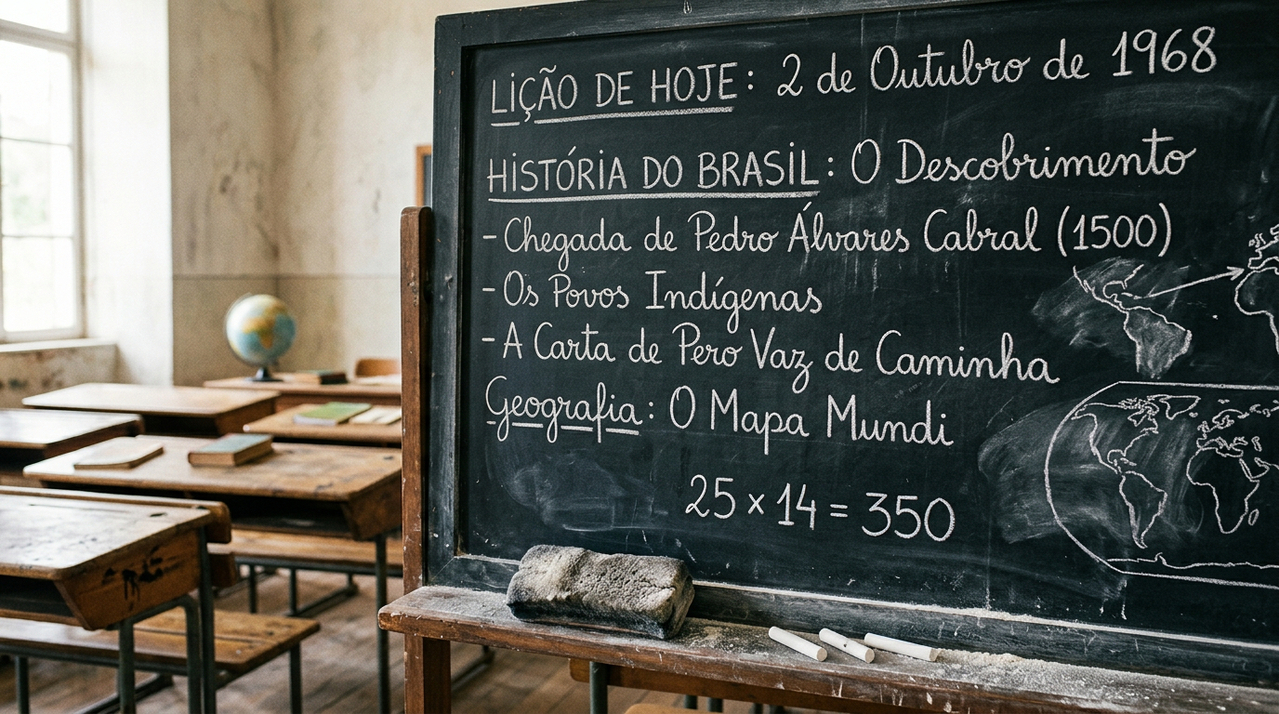 LIÇÃO DE HOJE: 2 de Outubro de 1968
HISTÓRIA DO BRASIL: O Descobrimento
- Chegada de Pedro Álvares Cabral (1500)
- Os Povos Indígenas
- A Carta de Pero Vaz de Caminha
Geografia: O Mapa Mundi
25 × 14 = 350